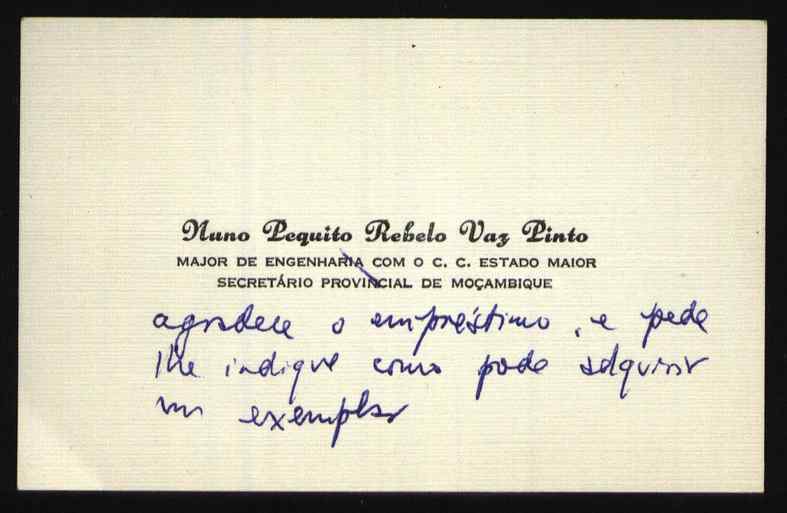 Nuno Pequito Rebelo Vaz Pinto
MAJOR DE ENGENHARIA COM O C. C. ESTADO MAIOR
SECRETÁRIO PROVINCIAL DE MOÇAMBIQUE
agradece o empréstimo, e pede
lhe indique como pode adquirir
um exemplar